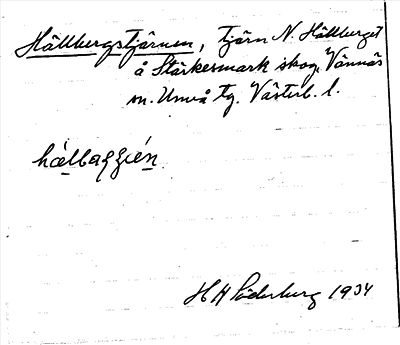 Hällbergstjärnen, tjärn N. Hällberget
å Stärkesmark skog, Vännäs
sn. Umeå tg. Västerb. l.
H H Söderberg 1934